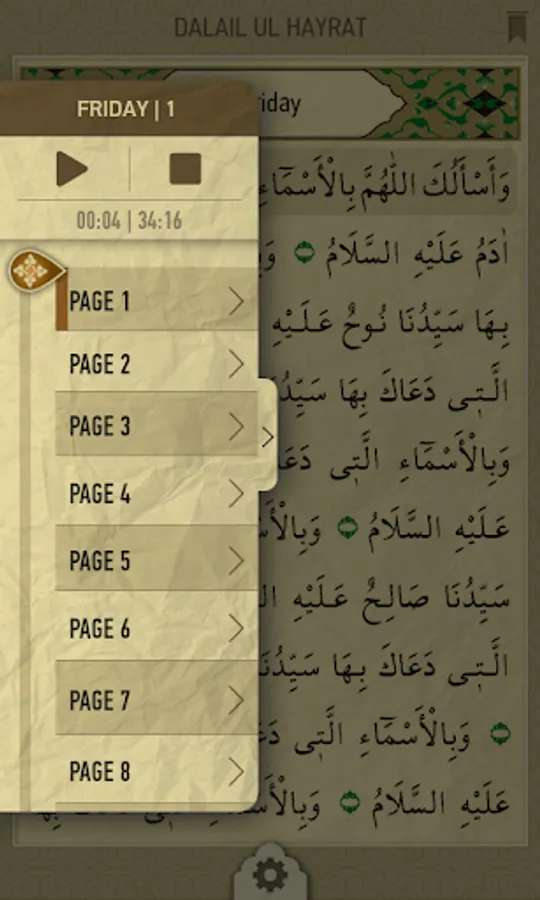 DALAIL UL HAYRAT
FRIDAY | 1
iday
00:04 | 34:16
PAGE 1
PAGE 2
PAGE 3
PAGE 4
PAGE 5
PAGE 6
PAGE 7
PAGE 8
وَأَسْأَلُكَ اللّٰهُمَّ بِالْأَسْمَٓاءِ
اٰدَمُ عَلَيْهِ السَّلَامُ
بِهَا سَيِّدُنَا نُوحٌ عَلَيْهِ
الَّتِى دَعَاكَ بِهَا
وَبِالْأَسْمَٓاءِ الَّتِى
عَلَيْهِ السَّلَامُ
سَيِّدُنَا صَالِحٌ عَلَيْهِ
الَّتِى دَعَاكَ بِهَا
وَبِالْأَسْمَٓاءِ الَّتِى
عَلَيْهِ السَّلَامُ